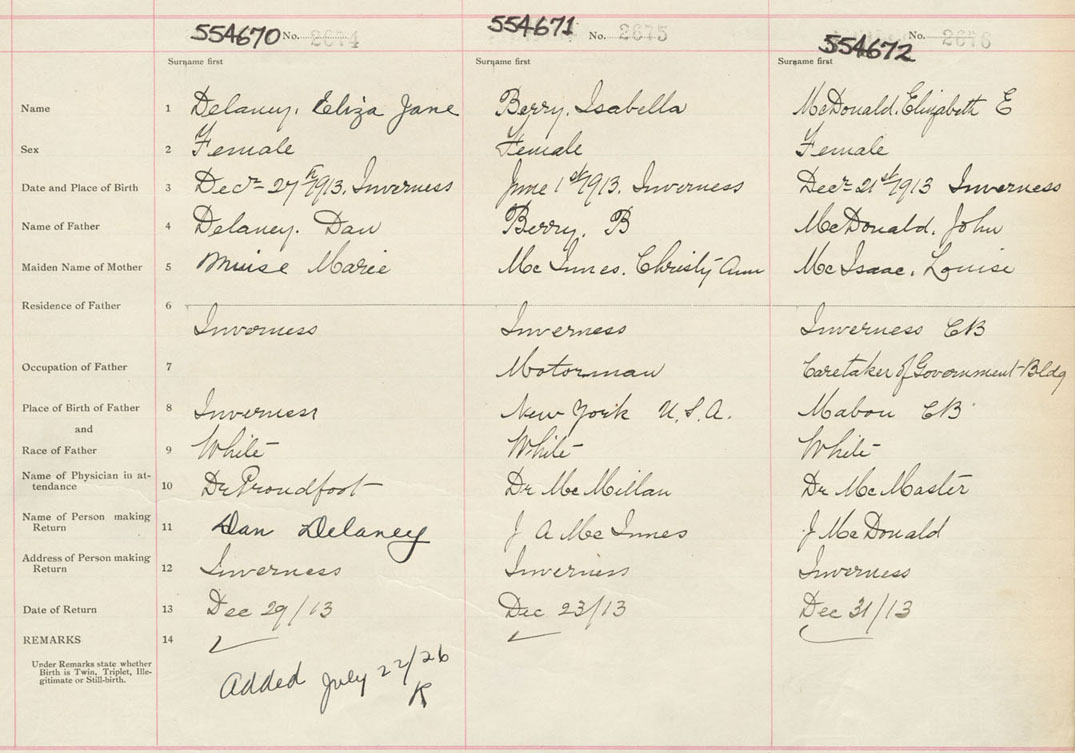 554670 No. 2674 554671 No. 2675 554672 No. 2676
Surname first Surname first Surname first
Name 1 Delaney, Eliza Jane Berry, Isabella McDonald, Elizabeth E
Sex 2 Female Female Female
Date and Place of Birth 3 Decr 27th/1913. Inverness June 1st/1913. Inverness Decr 21st/1913 Inverness
Name of Father 4 Delaney. Dan Berry, B McDonald, John
Maiden Name of Mother 5 Muise Marie McInnes, Christy Ann McIsaac, Louise
Residence of Father 6
Inverness Inverness Inverness CB
Occupation of Father 7 Motorman Caretaker of Government Bldg
Place of Birth of Father 8 Inverness New York U.S.A. Mabou CB
and
Race of Father 9 White White White
Name of Physician in at-
tendance 10 Dr Proudfoot Dr McMillan Dr McMaster
Name of Person making
Return 11 Dan Delaney J A McInnes J McDonald
Address of Person making
Return 12 Inverness Inverness Inverness
Date of Return 13 Dec 29/13 Dec 23/13 Dec 31/13
REMARKS 14
Under Remarks state whether
Birth is Twin, Triplet, Ille-
gitimate or Still-birth.
Added July 22/26
R